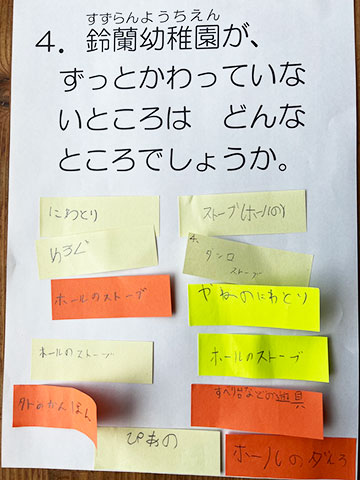 すずらんようちえん
4．鈴蘭幼稚園が、
ずっとかわっていな
いところは　どんな
ところでしょうか。
にわとり
ストーブ(ホールの)
4.
ダンロ
ストーブ
ホールのストーブ
やねのにわとり
ホールのストーブ
ホールのストーブ
外のかんばん
すべり台などの遊具
ぴあの
ホールの